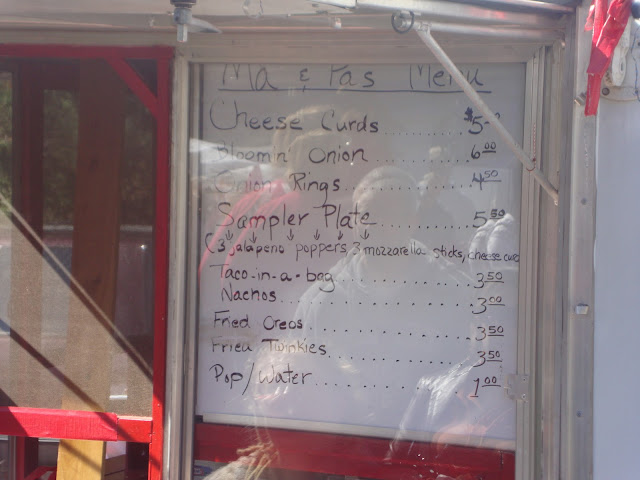 Ma & Pas Menu
Cheese Curds ........... $5.00
Bloomin' Onion ............ 6.00
Onion Rings ............... 4.50
Sampler Plate ............ 5.50
(3 jalapeno poppers, 3 mozzarella sticks, cheese curds
Taco-in-a-bag ............ 3.50
Nachos ............ 3.00
Fried Oreos ............ 3.50
Fried Twinkies ............ 3.50
Pop/Water ............ 1.00